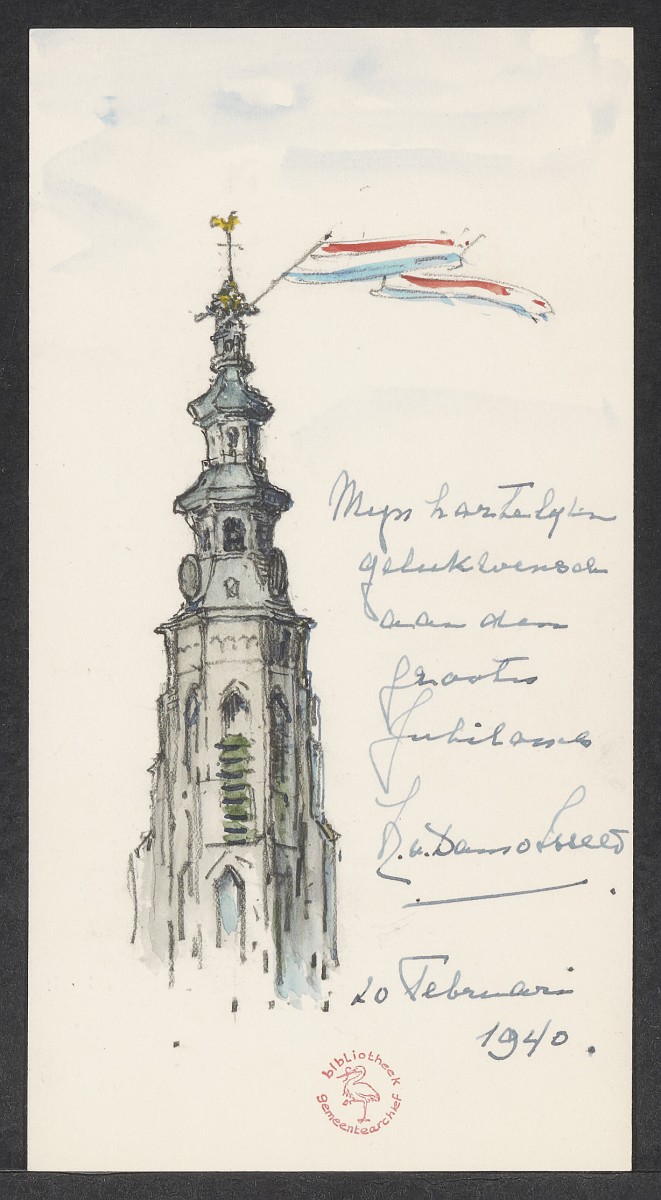 Mijn hartelijken
gelukwensch
aan den
grooten
Jubilaris
H. v. Dam
20 Februari
1940.
bibliotheek
gemeentearchief